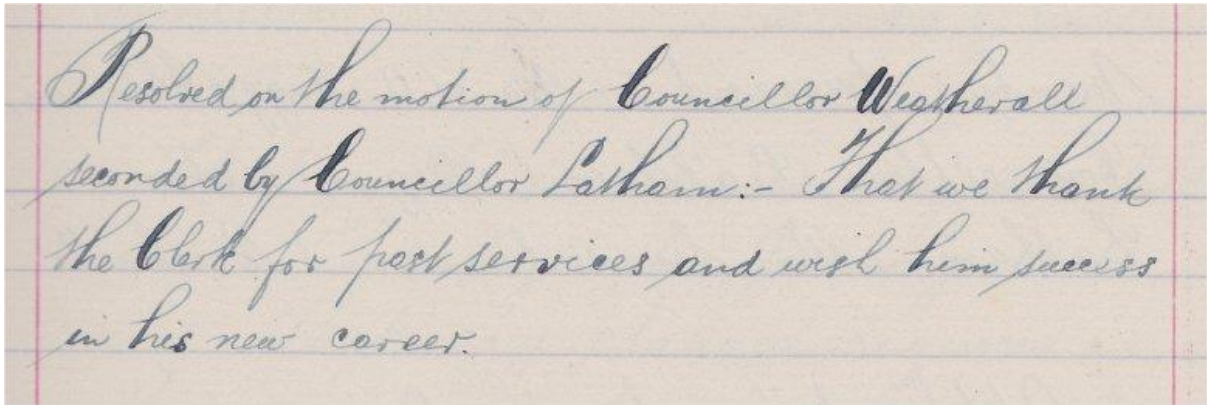 Resolved on the motion of Councillor Weatherall
seconded by Councillor Latham:- That we thank
the Clerk for past services and wish him success
in his new career.